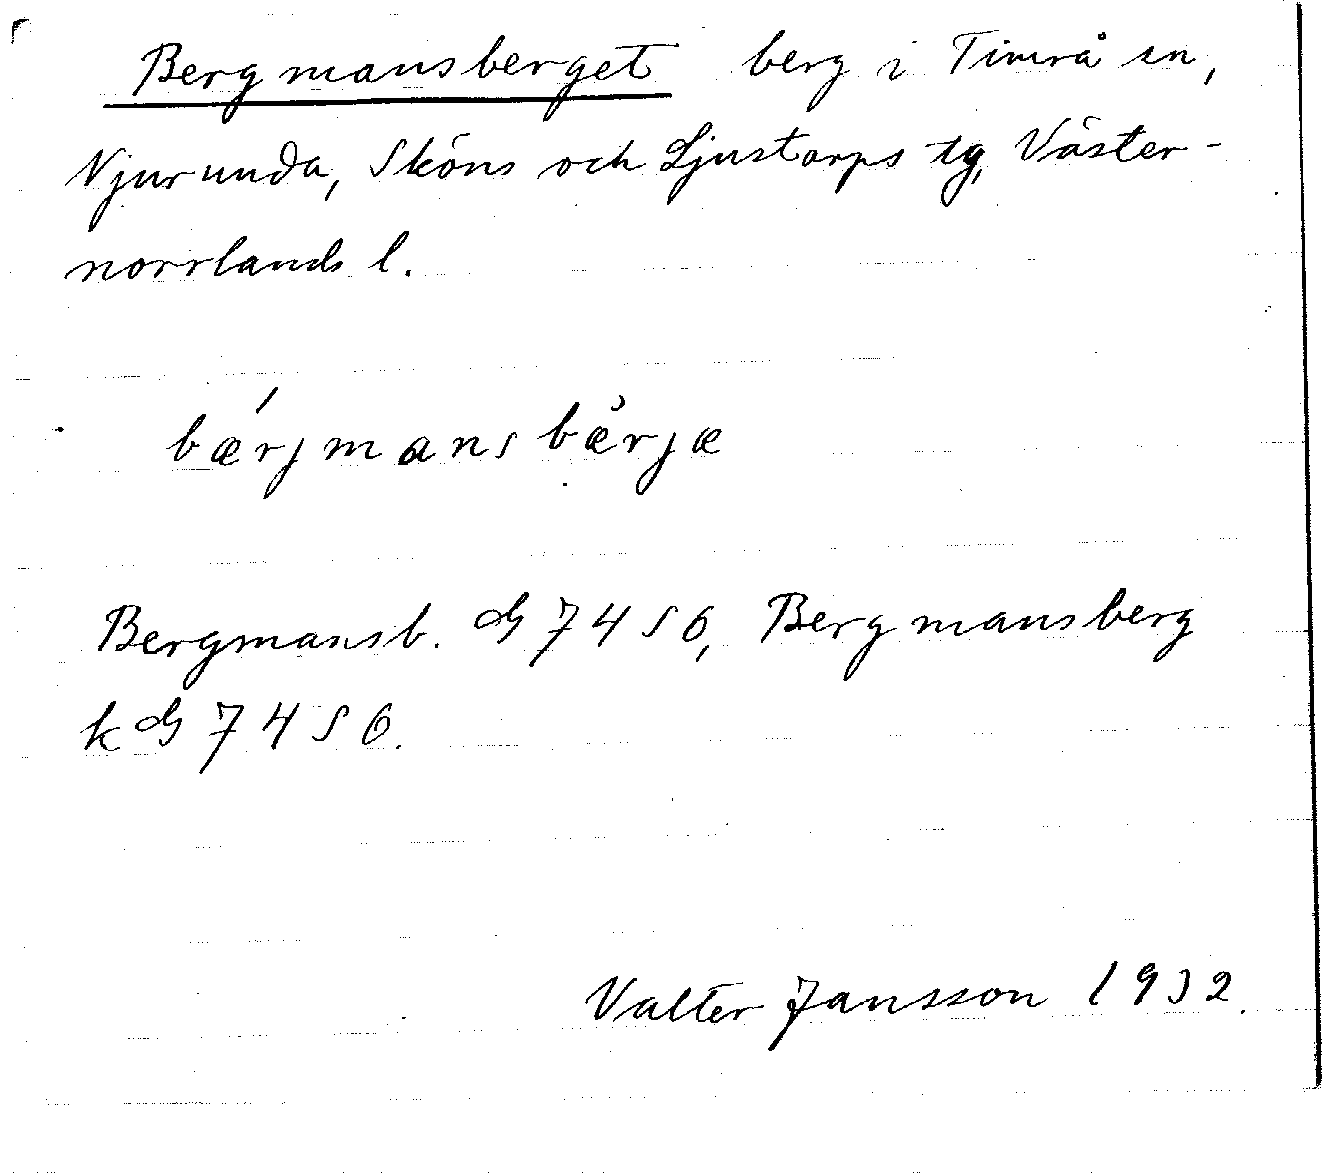 Bergmansberget berg i Timrå sn,
Njurunda, Sköns och Ljustorps tg, Väster-
norrlands l.
bærjmansbærjæ
Bergmansb. G 7456, Bergmansberg
k G 7456.
Valter Jansson 1932.